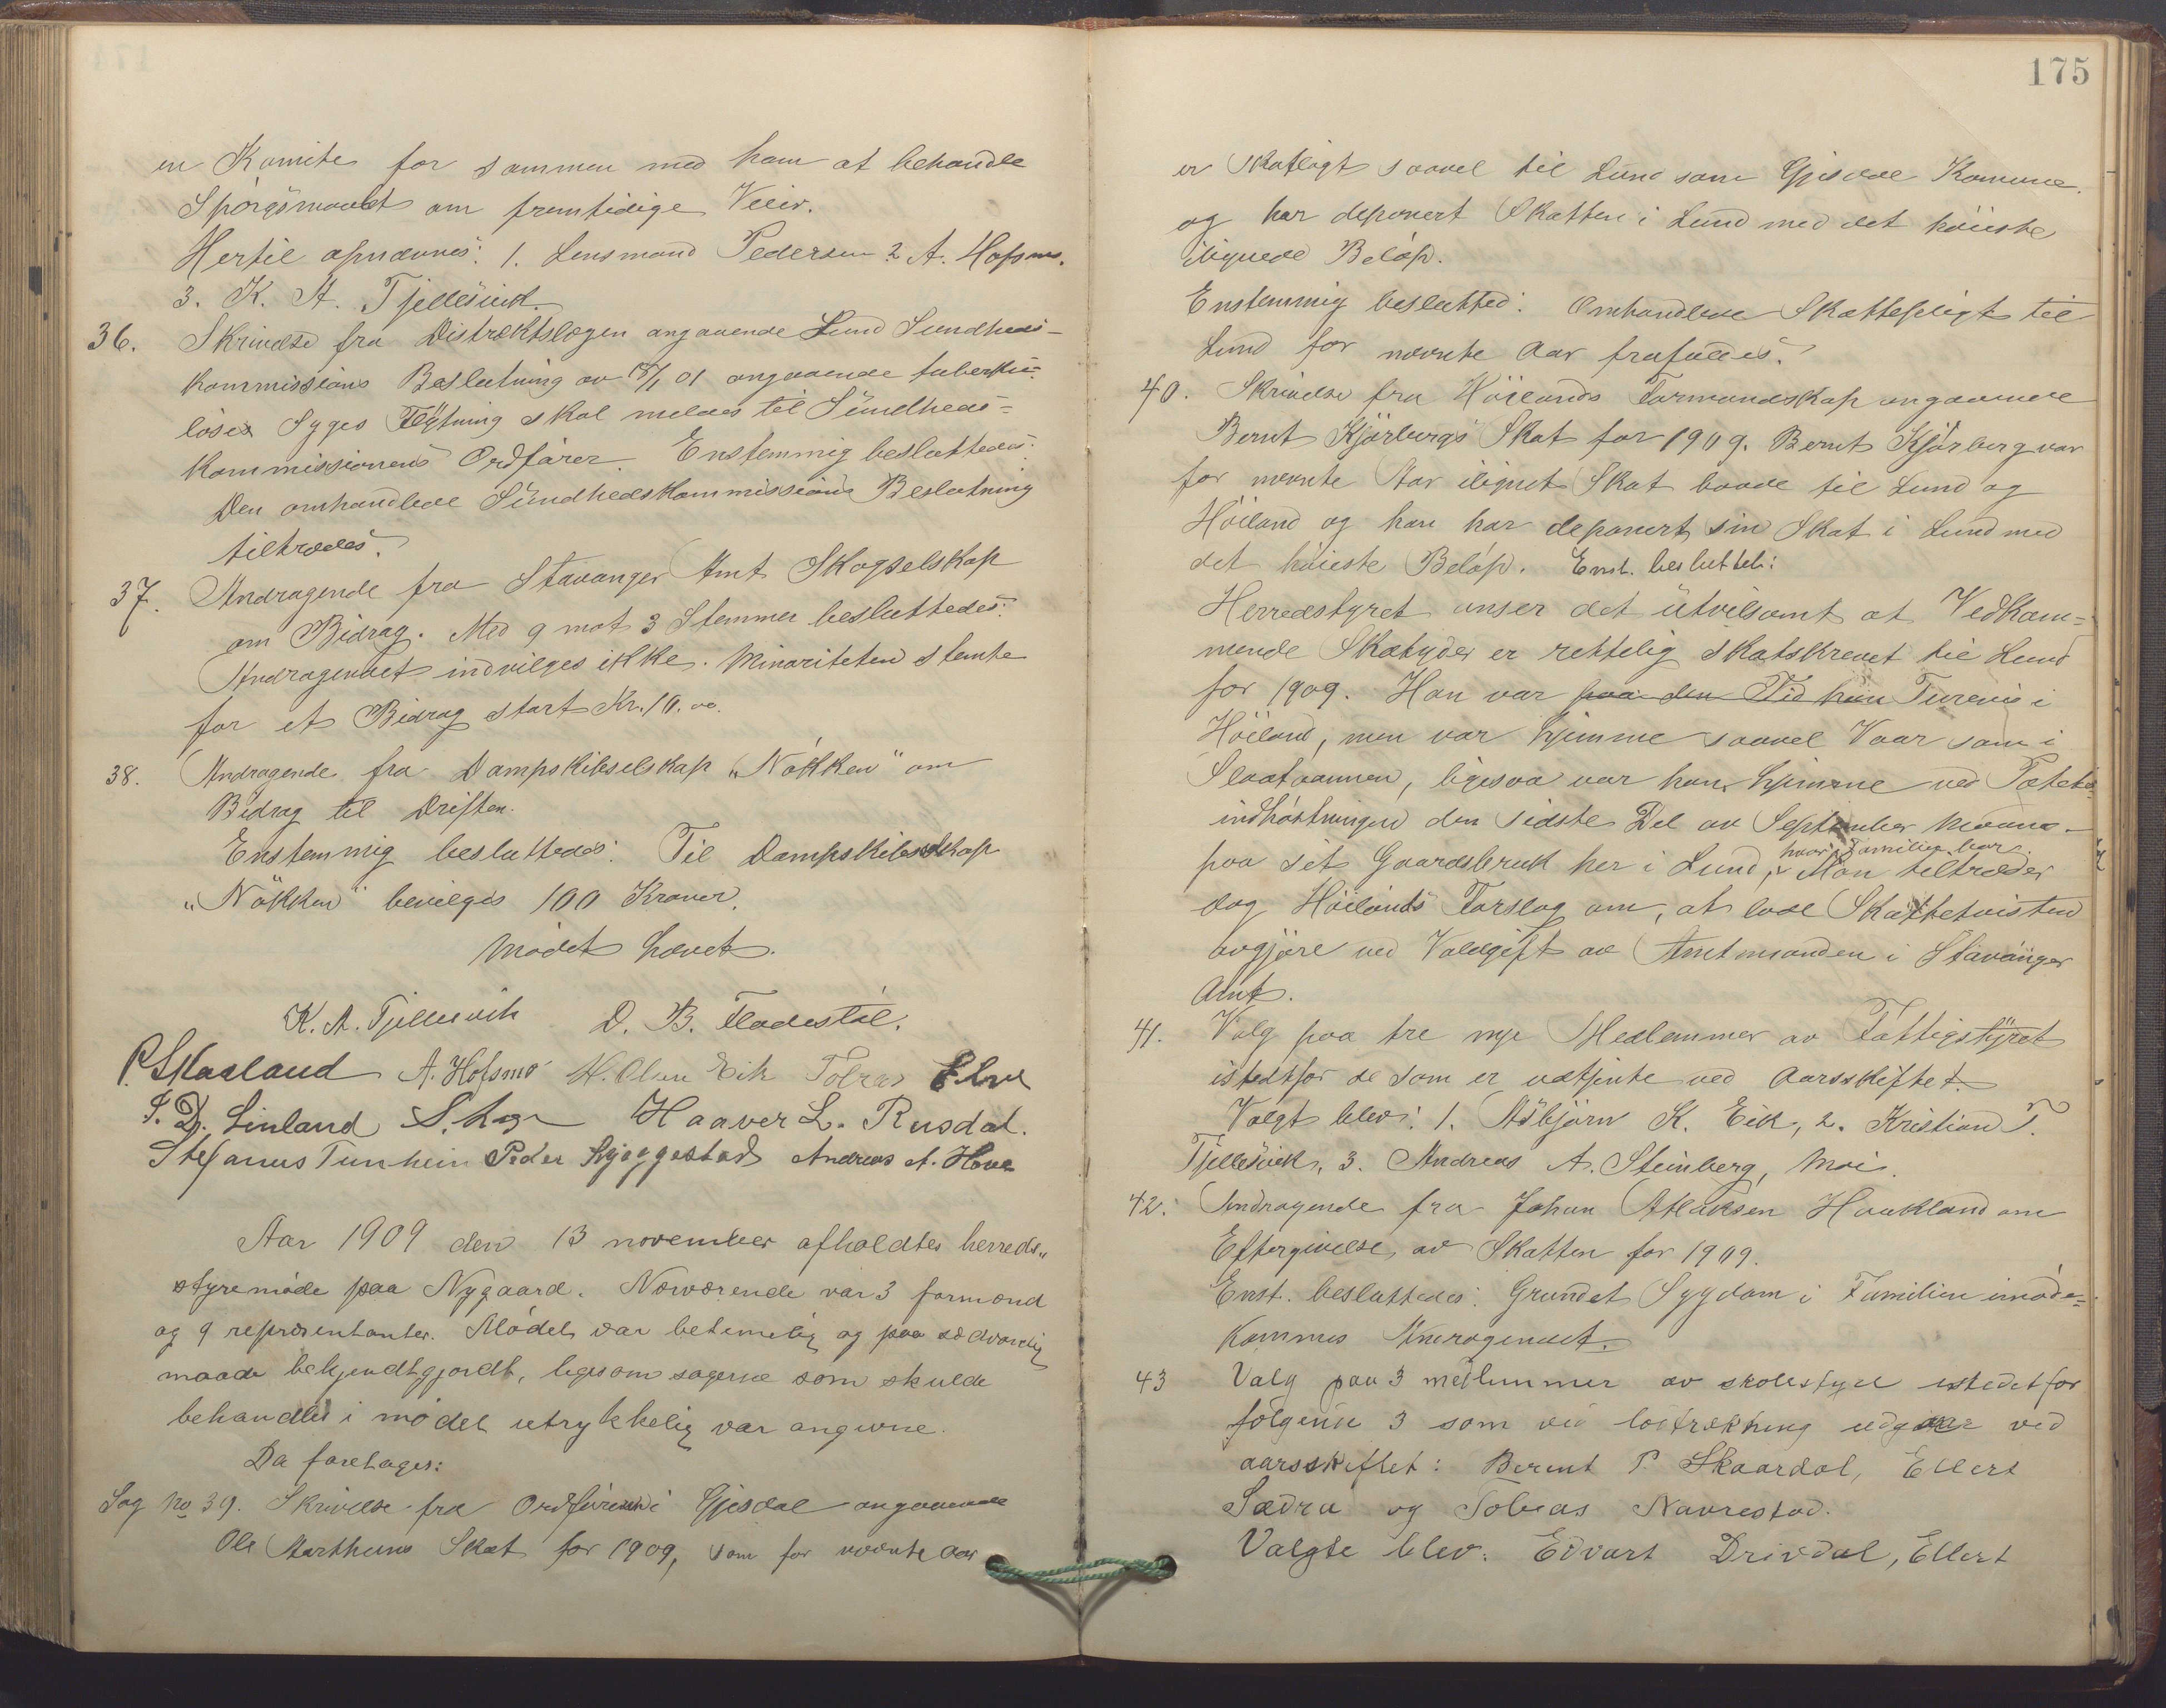 en Komite for sammen med ham at behandle
Spörgsmaalet om fremtidige Veier.
Hertil opnævnes: 1. Lensmand Pedersen 2 A. Hofsmo.
3. K. A. Tjellesvik.
36. Skrivelse fra Distriktslægen angaaende Lund Sundheds-
kommissions Beslutning av 18/1 01 angaaende tuberku-
löses Syges Flytning skal meldes til Sundheds=
kommissionens Ordförer. Enstemmig besluttedes:
Den omhandlede Sundhedskommissions Beslutning
tiltrædes.
37. Andragende fra Stavanger Amt Skogselskap
om Bidrag. Med 9 mot 3 Stemmer besluttedes:
Andragendet indvilges ikke. Minoriteten stemte
for et Bidrag stort Kr. 10.00.
38. Andragende fra Dampskibselskap "Nökken" om
Bidrag til Driften.
Enstemmig besluttedes: Til Dampskibselskap
"Nökken" bevilges 100 Kroner.
Mödet hævet.
K. A. Tjellesvik D. B. Fladestöl.
P. Skaaland A. Hofsmo H. Olsen Eik Tobias Eben
T. D. Linland Haaver L. Rusdal.
Stefanus Tunheim Peder Skjeggestad Andreas A. Hove
Aar 1909 den 13 november afholdtes herreds„
styremöde paa Nygaard. Nærværende var 3 formænd
og 9 repræsentanter. Mödet var betimelig og paa sædvanlig
maade bekjendtgjordt, ligesom sagerne som skulde
behandles i mödet utrykkelig var angivne.
Da foretages:
Sag No 39. Skrivelse fra Ordföreren i Gjesdal angaaende
Ole Aarthuns Skat for 1909, som for nævnte Aar
175
er skatlagt saavel til Lund som Gjesdal Komune.
og har deponert Skatten i Lund med det höieste
ilignede Belöp.
Enstemmig beslutted: Omhandlede Skattepligt til
Lund for nævnte Aar frafaldes.
40. Skrivelse fra Höilands Formandskap angaaende
Bernt Kjörbergs Skat for 1909. Bernt Kjörberg var
for nævnte Aar ilignet Skat baade til Lund og
Höiland og han har deponert sin Skat i Lund med
det höieste Belöp. Enst. besluttet:
Herredstyret anser det utvilsomt at Vedkom=
mende Skatyder er rettelig skatskrevet til Lund
for 1909. Han var paa den Tid hun Turevis i
Höiland, men var hjemme saavel Vaar som i
Slaataannen, ligesaa var han hjemme ved Potet-
indhöstningen den sidste Del av September Maaned
hvor Familien bor.
paa sit Gaardsbruk her i Lund, Man tiltræder
dog Höilands Forslag om, at lade Skattetvisten
avgjöre ved Voldgift av Amtmanden i Stavanger
Amt.
41. Valg paa tre nye Medlemmer av Fattigstyret
istedtfor de som er uttjente ved Aarsskiftet.
Valgt blev: 1. Asbjörn K. Eik, 2. Kristian T.
Tjellesvik, 3. Andreas A. Steinberg, Moi.
42. Andragende fra Johan Atlaksen Haukland om
Eftergivelse av Skatten for 1909.
Enst. besluttedes: Grundet Sygdom i Familien imöde=
kommes Andragendet.
43 Valg paa 3 medlemmer av skolestyret istedetfor
fölgende 3 som ved lodtrækning udgaar ved
aarsskiftet: Berent P. Skaardal, Ellert
Sædra og Tobias Navrestad.
Valgte blev: Edvart Drivdal, Ellert